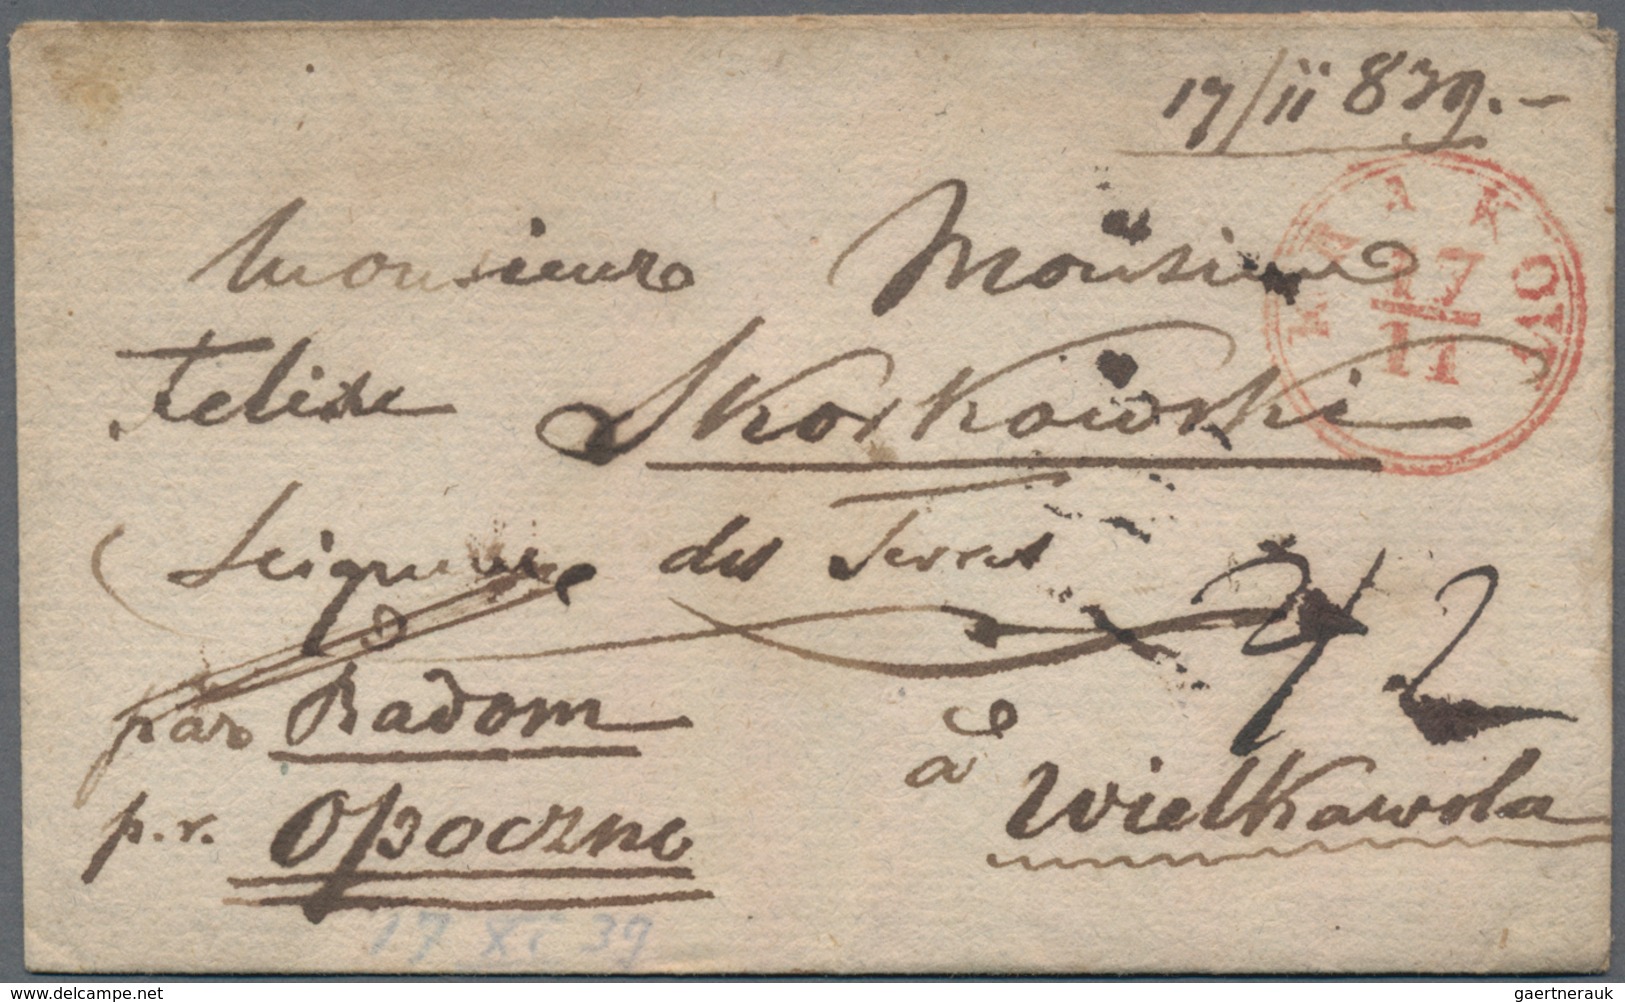 17/ii 839.-
KRAKOVE
17
11
Monsieur Monsieur
Felix Skorkowski
Seigneur des Terres
par Radom
à
p. r. Opoczno
Wielkawola
17 XI 39
www.delcampe.net
gaertnerauk